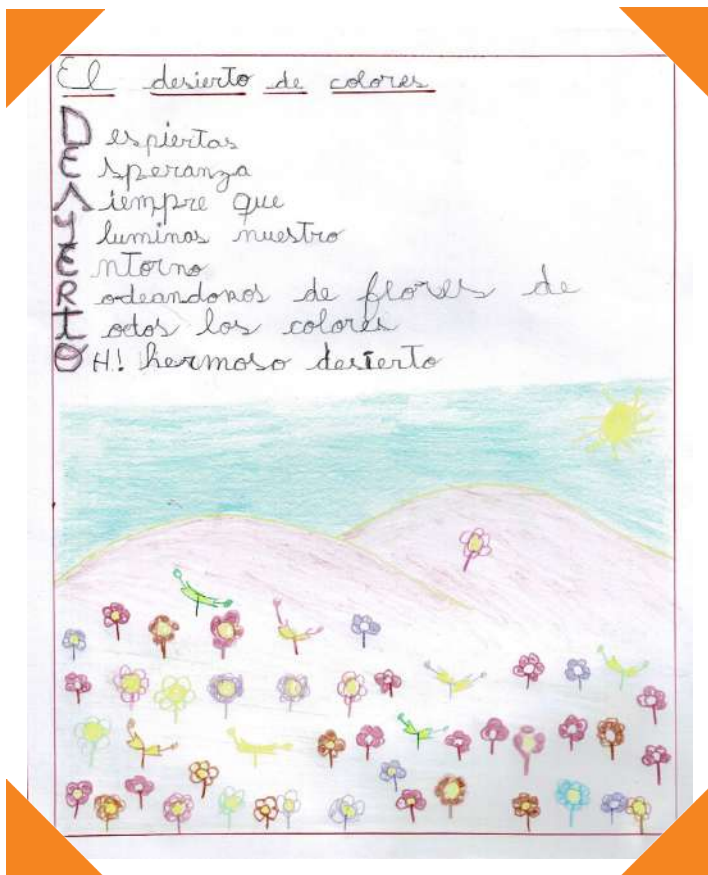 El desierto de colores
Despiertas
Esperanza
Siempre que
Iluminas nuestro
Entorno
Rodeandonos de flores de
Todos los colores
OH! hermoso desierto